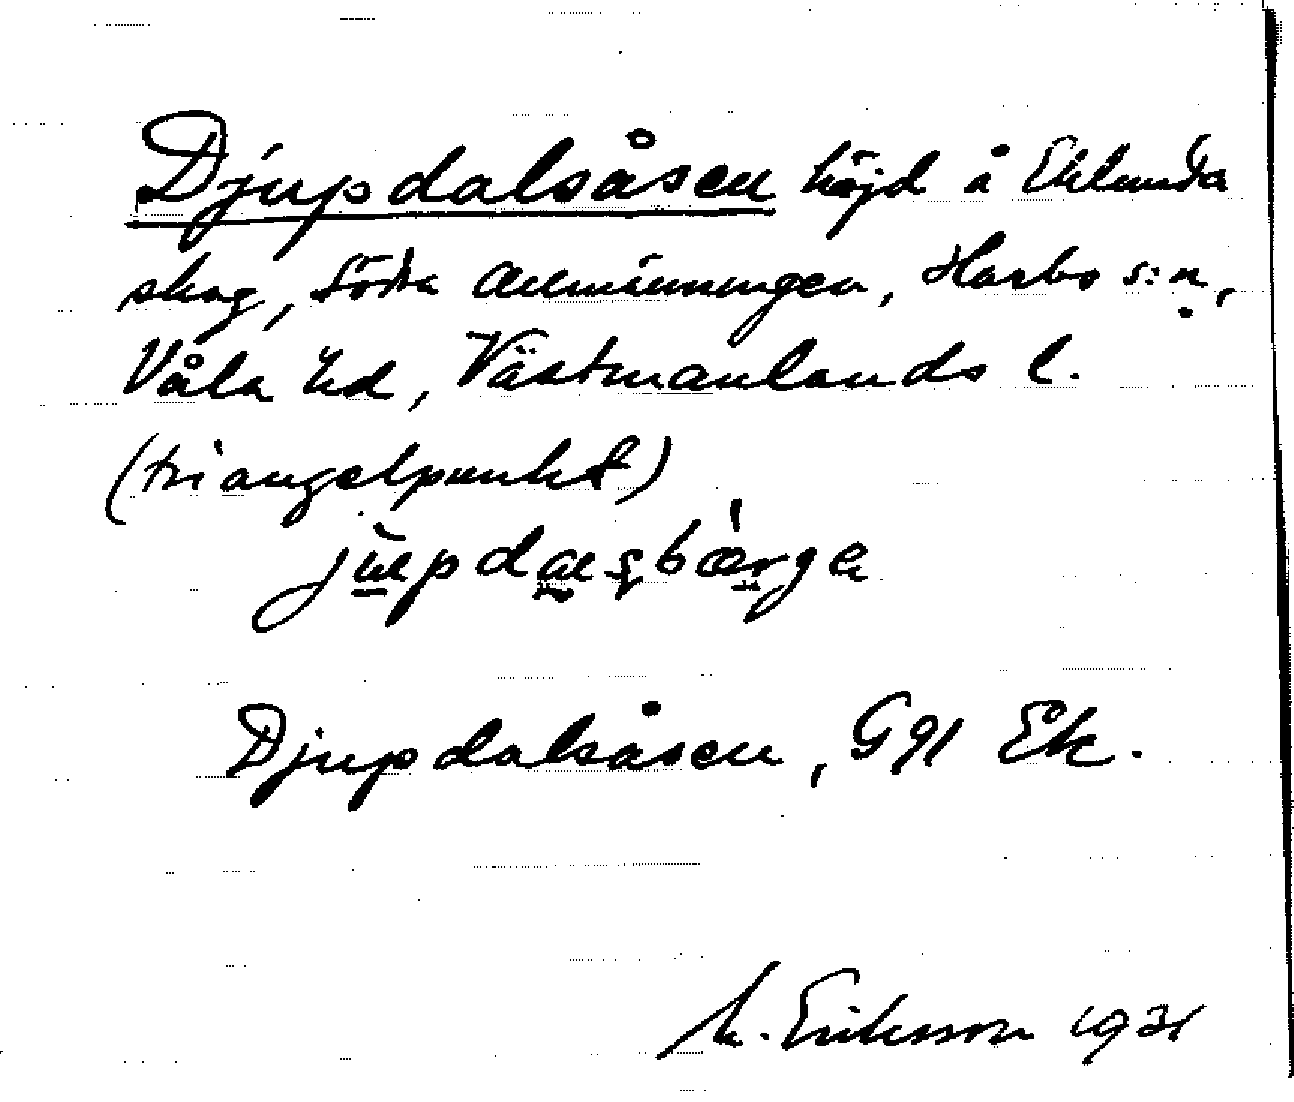 Djupdalsåsen höjd å Eklunda
skog, Södra Allmänningen, Harbo s:n,
Våla hd, Västmanlands l.
(triangelpunkt)
Djupdalsåsen, Ggl Ek.
M. Eriksson 1931